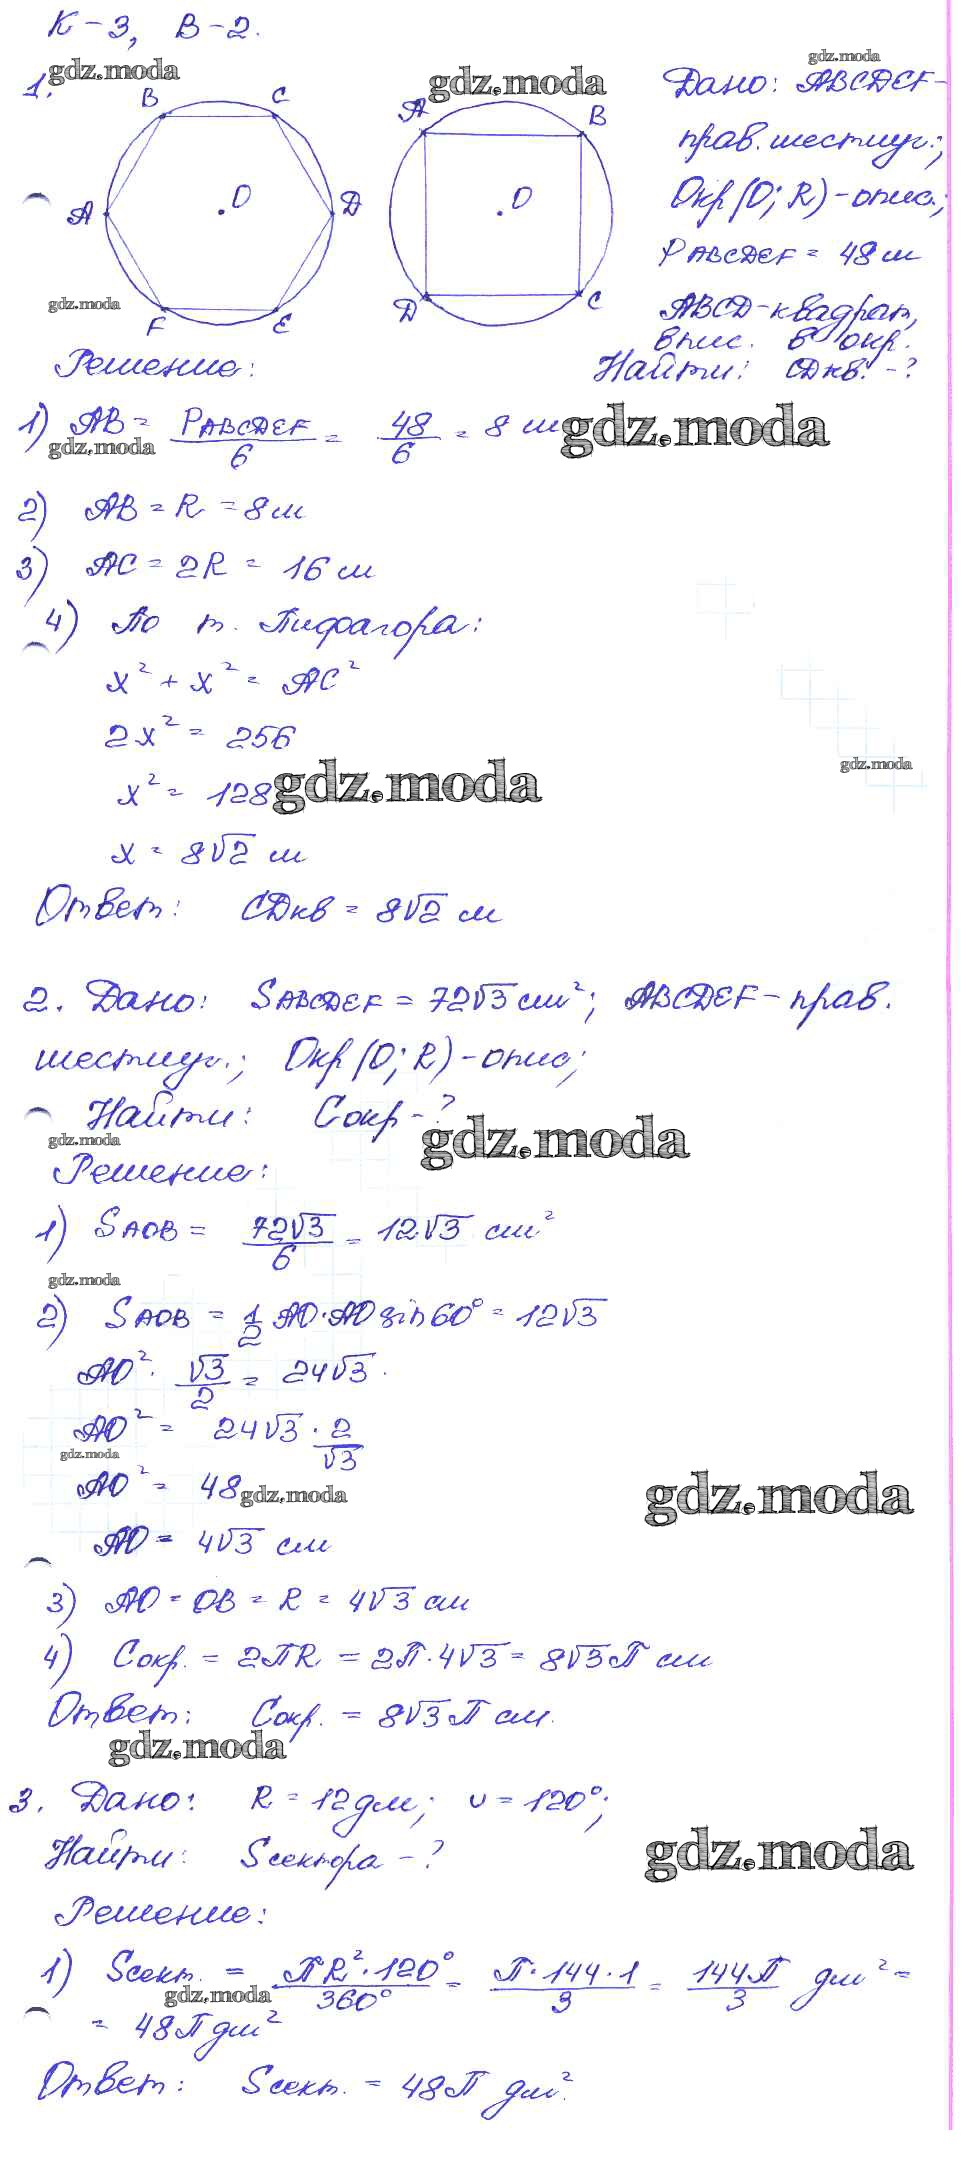 К-3, В-2.
gdz.moda
gdz.moda
gdz.moda
1.
B C
A D
F E
O
A B
D C
O
Дано: ABCDEF-
прав. шестиуг.;
Окр(O; R)-опис.;
PABCDEF = 48 м
gdz.moda
ABCD-квадрат,
впис. в окр.
Решение:
Найти: CDкв. -?
1) AB = PABCDEF/6 = 48/6 = 8 м
gdz.moda
gdz.moda
2) AB = R = 8 м
3) AC = 2R = 16 м
4) По т. Пифагора:
x² + x² = AC²
2x² = 256
gdz.moda
x² = 128
gdz.moda
x = 8√2 м
Ответ: CDкв = 8√2 м
2. Дано: SABCDEF = 72√3 см²; ABCDEF-прав.
шестиуг.; Окр(O; R)-опис;
Найти: Cокр-?
gdz.moda
gdz.moda
Решение:
1) SAOB = 72√3/6 = 12√3 см²
gdz.moda
2) SAOB = 1/2 AO·AO sin60° = 12√3
AO² · √3/2 = 24√3.
AO² = 24√3 · 2/√3
gdz.moda
AO² = 48
gdz.moda
gdz.moda
AO = 4√3 см
3) AO = OB = R = 4√3 см
4) Cокр. = 2ПR = 2П·4√3 = 8√3П см
Ответ: Cокр. = 8√3П см.
gdz.moda
3. Дано: R = 12 дм; ∪ = 120°;
Найти: Sсектора -?
gdz.moda
Решение:
1) Sсект. = ПR²·120°/360° = П·144·1/3 = 144П/3 дм² =
gdz.moda
= 48П дм²
Ответ: Sсект. = 48П дм².